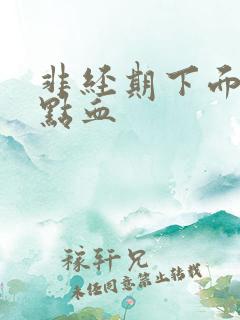 非经期下而
點血
稼轩兄
未经同意禁止转载